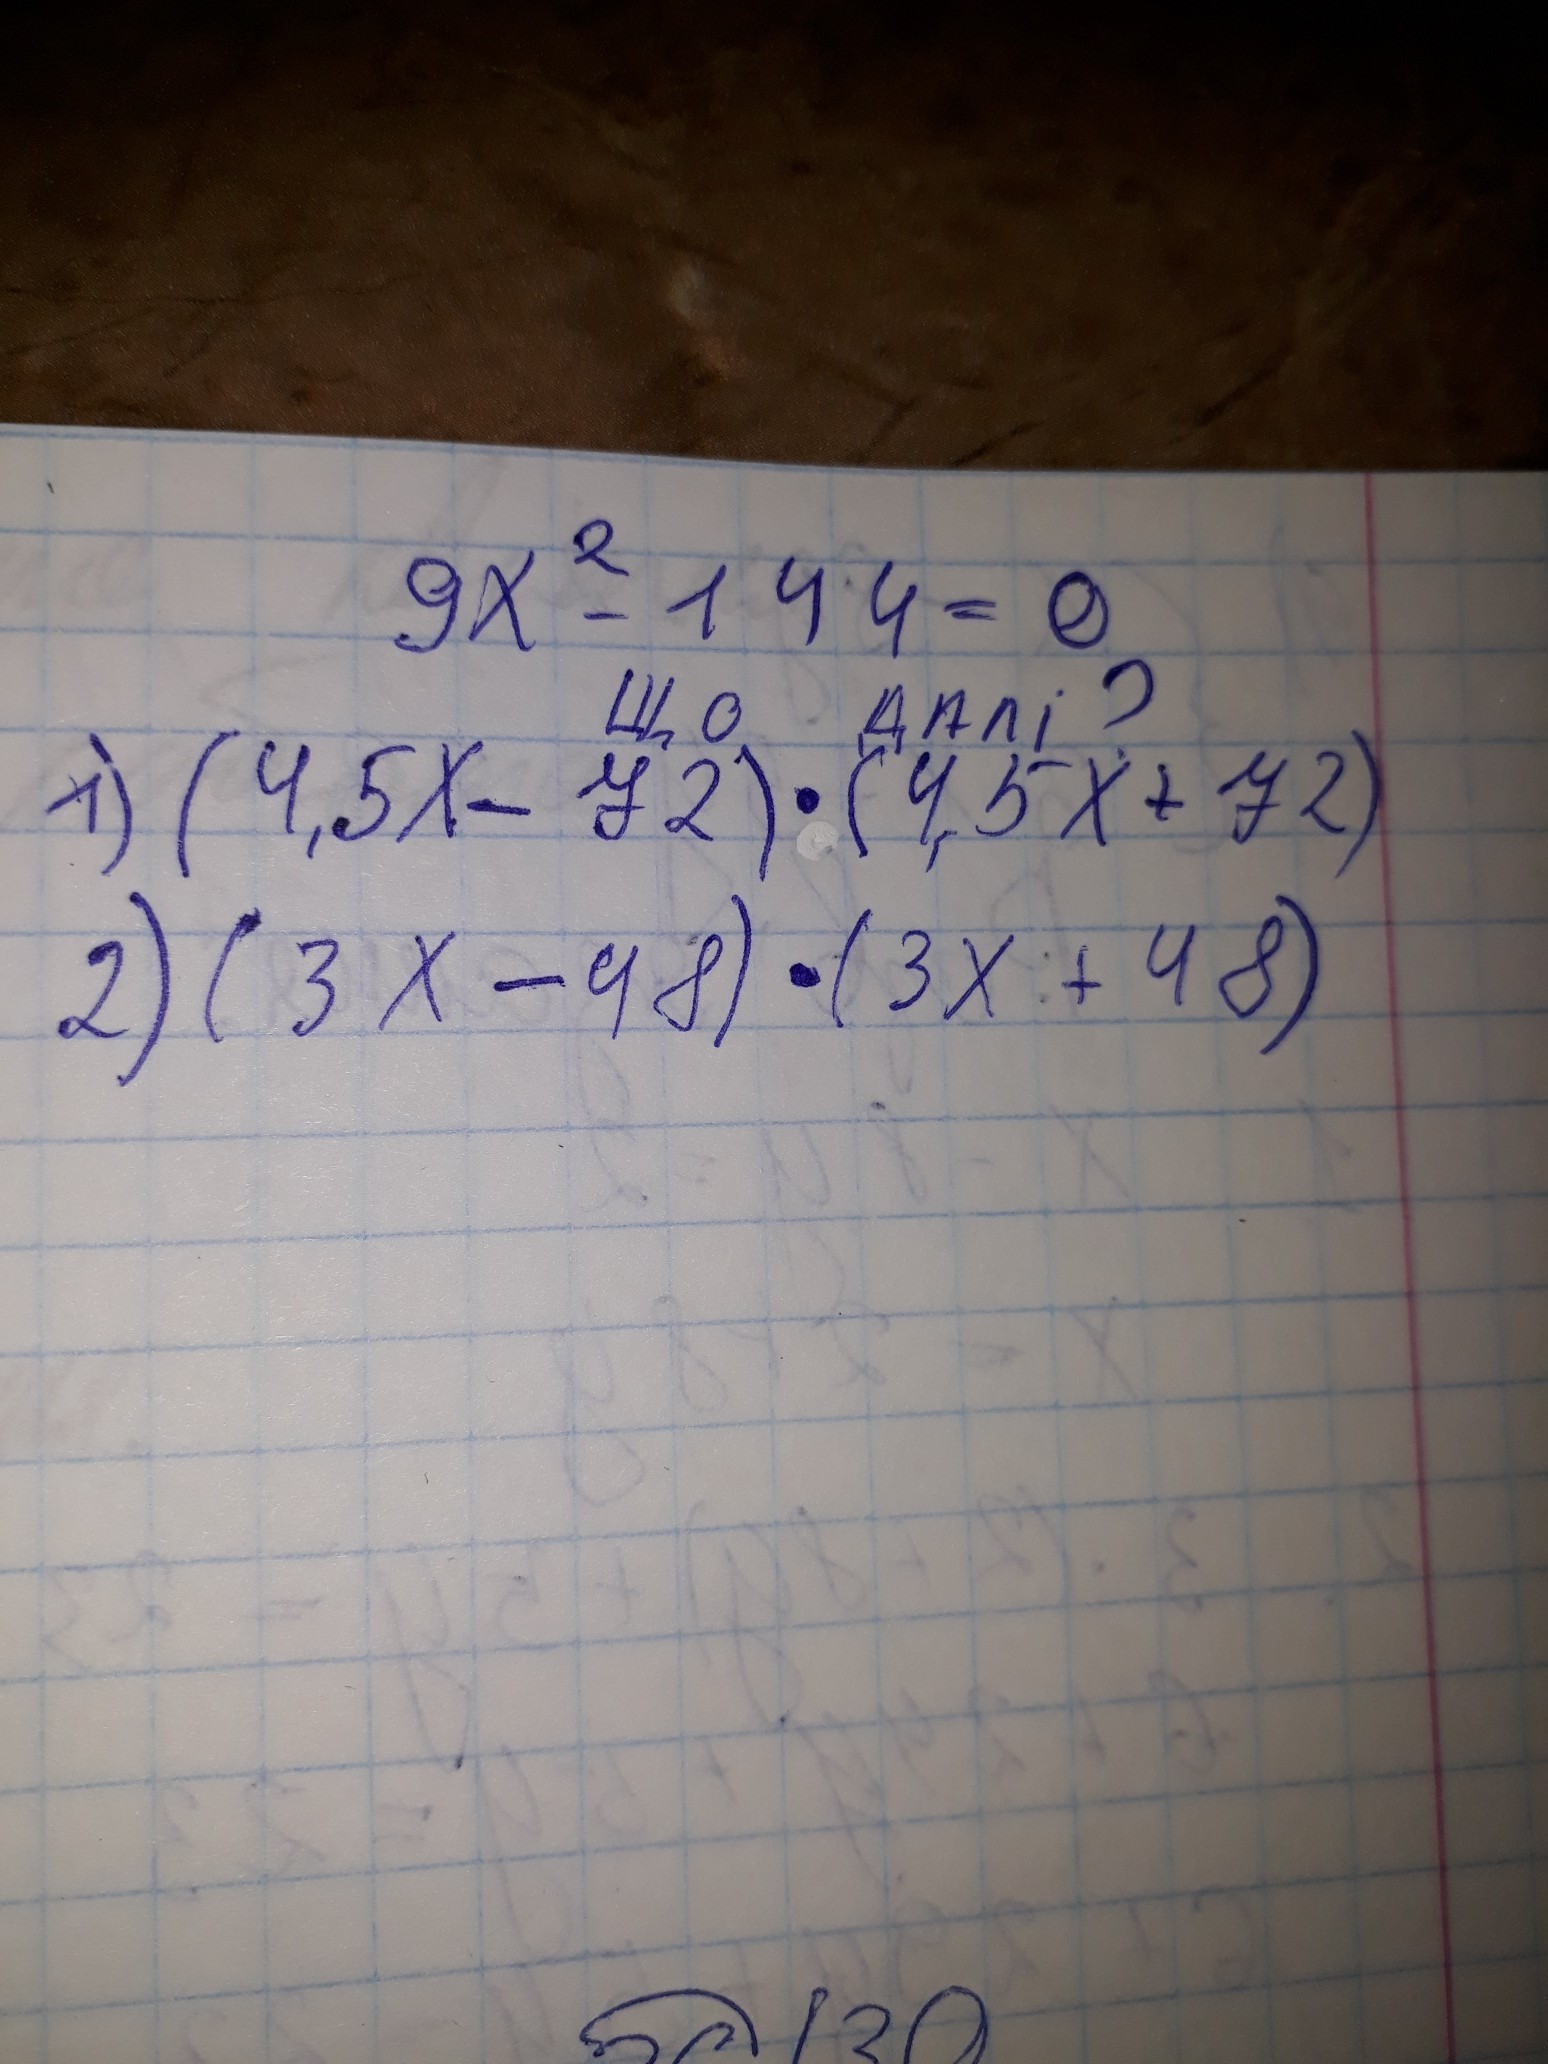 9x² - 144 = 0
Що далі?
1) (4,5x - 72) • (4,5x + 72)
2) (3x - 48) • (3x + 48)